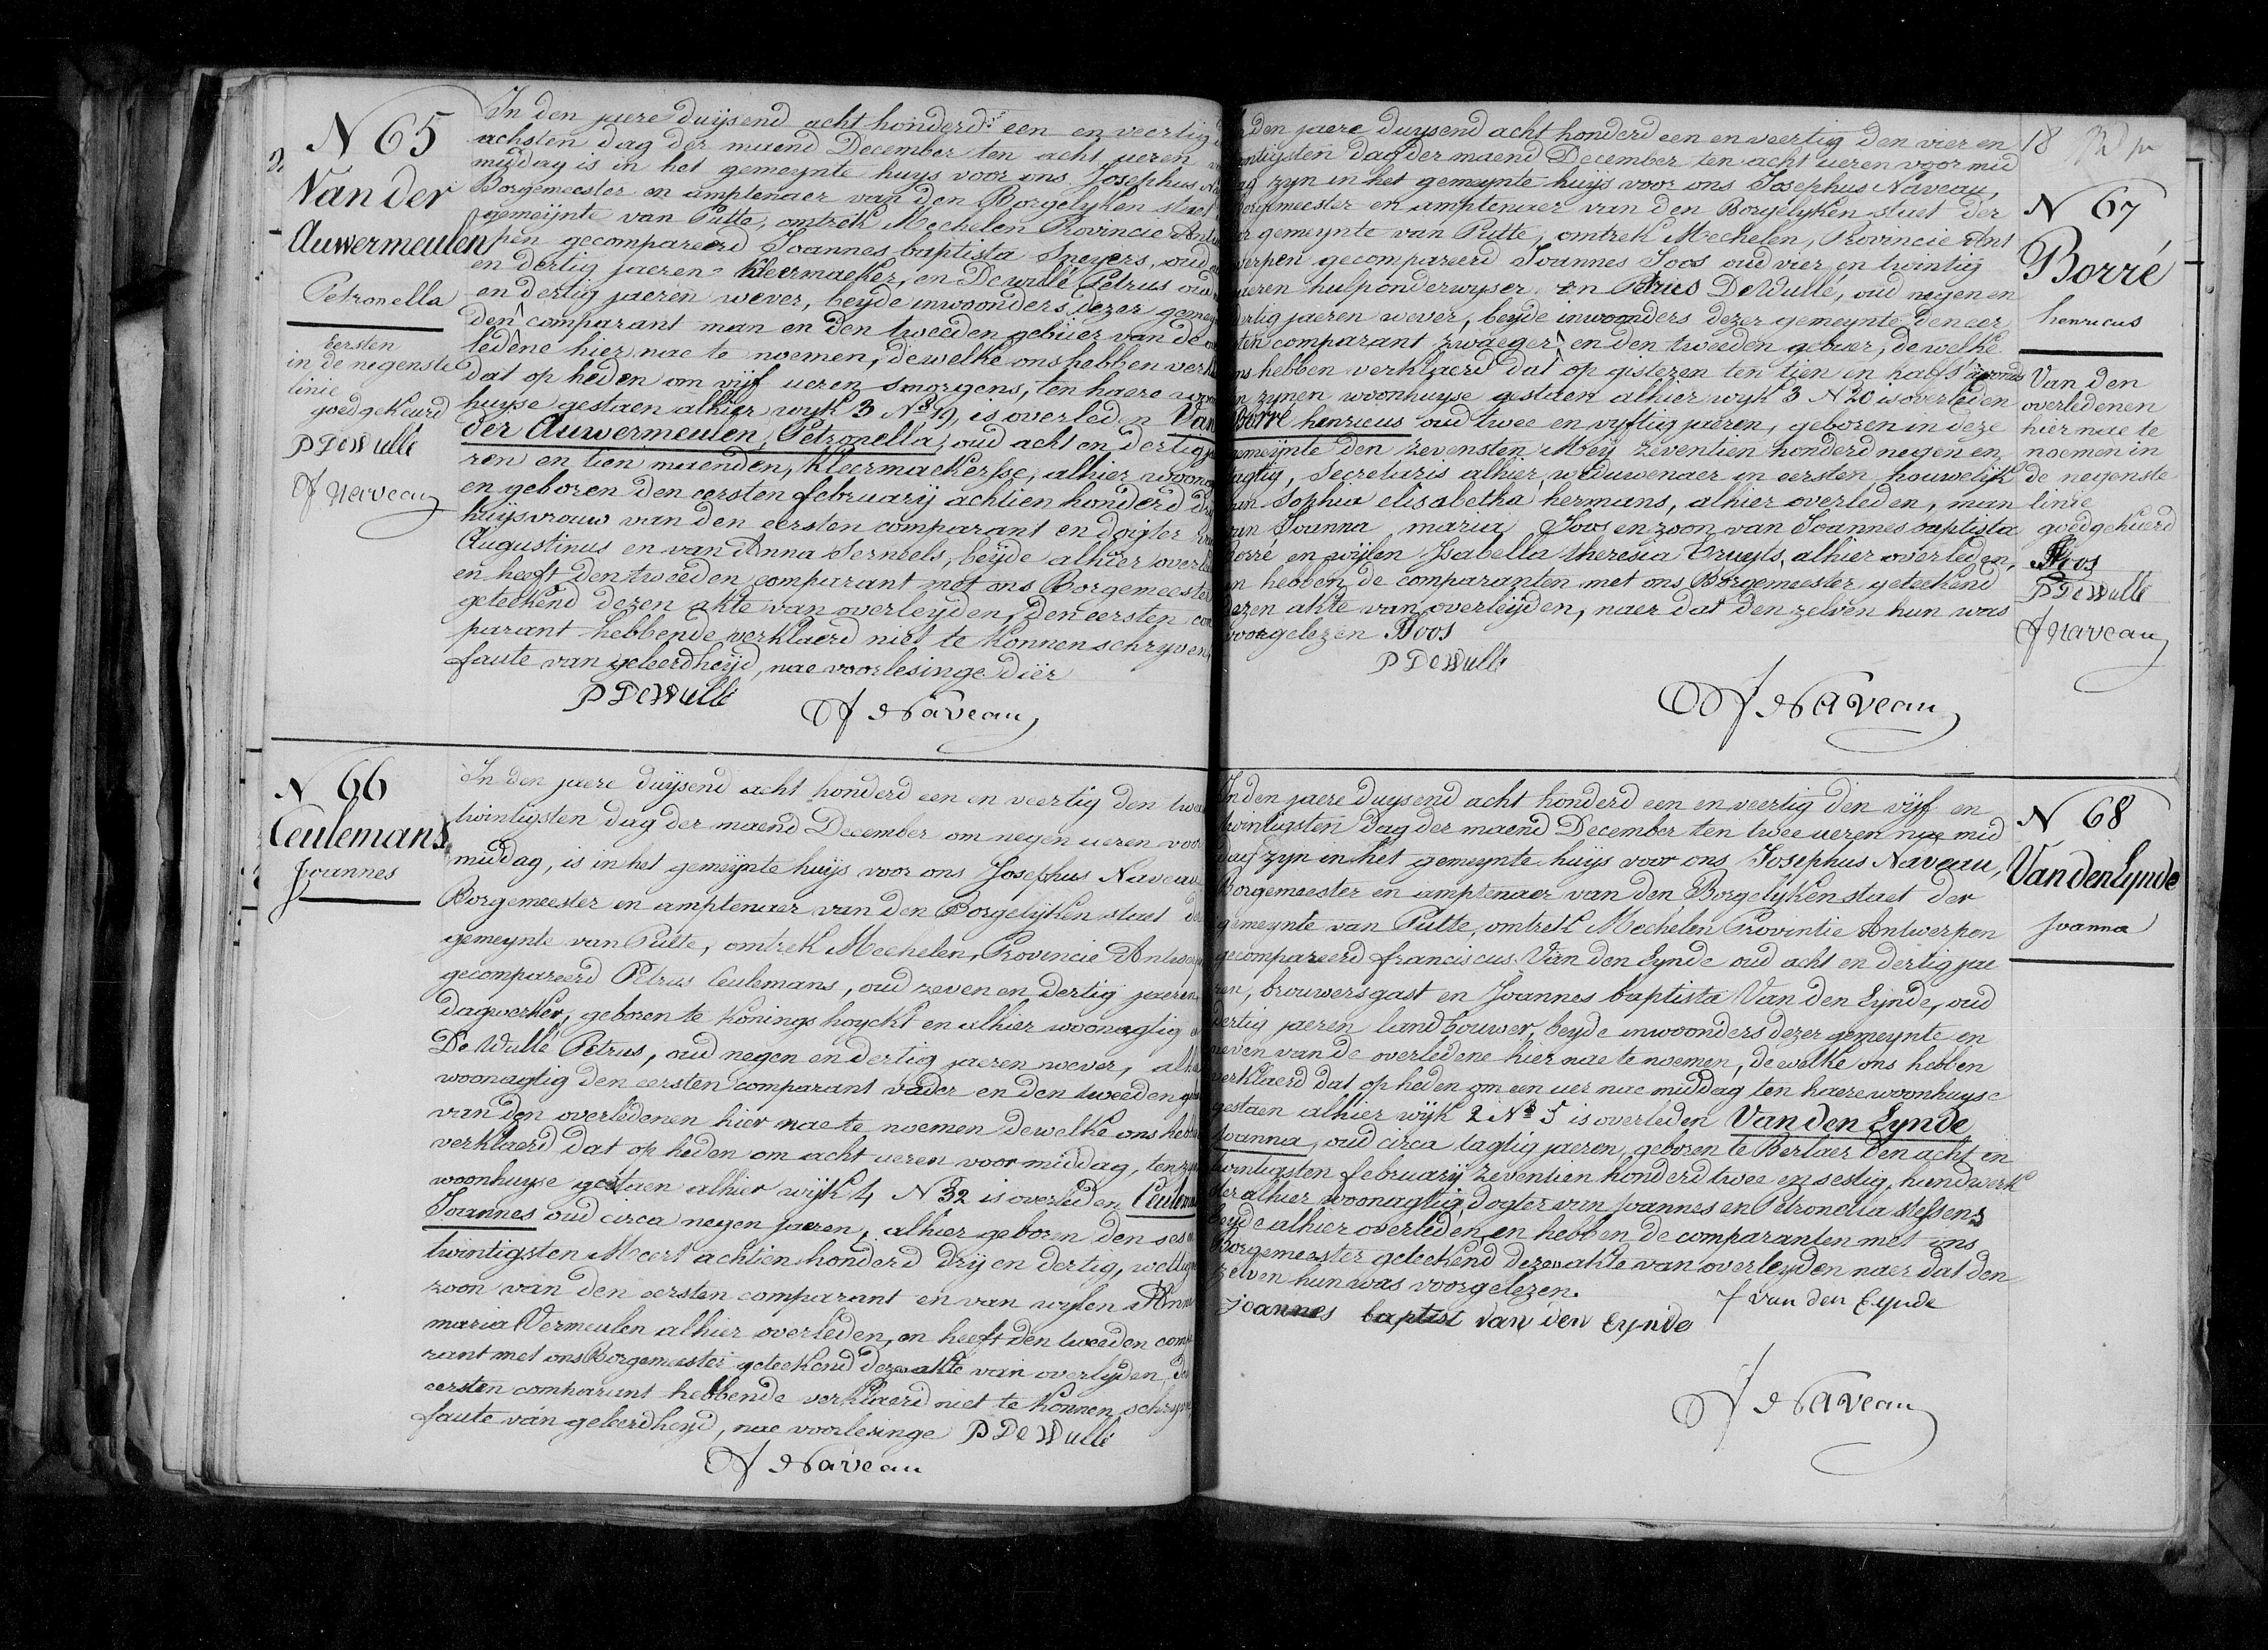 N 65
Van der
Auwermeulen
Petronella
Eersten
in de negenste
linie
goedgekeurd
P De Wulle
J Naveau
In den jaere duijsend acht honderd een en veertig
achsten dag der maend December ten acht ueren
middag is in het gemeynte huys voor ons Josephus
Borgemeester en amptenaer van den Borgelyken staet
gemeijnte van Putte, omtrek Mechelen Provincie
pen gecompareerd Joannes baptista Sneyers, oud
en dertig jaeren Kleermaeker, en De wullé Petrus oud
en dertig jaeren wever, beyde inwoonders dezer
den comparant man en den tweeden gebuer van de
ledene hier nae te noemen, dewelke ons hebben
dat op heden om vijf ueren smorgens, ten haere
huyse gestaen alhier wyk 3 N 19, is overleden Van
der Auwermeulen, Petronella, oud acht en dertig
ren en tien maenden, kleermaekersse, alhier
en geboren den eersten february achtien honderd
huijsvrouw van den eersten comparant en dogter
Augustinus en van Anna Serneels, beyde alhier
en heeft den tweeden comparant met ons Borgemeester
geteekend dezen akte van overleyden, den eersten
parant hebbende verklaerd niet te konnen schryven
faute van geleerdheijd, nae voorlesinge diër
P De Wullé
J Naveau
N 66
Ceulemans
Joannes
In den jaere duijsend acht honderd een en veertig den
twintigsten dag der maend December om negen ueren
middag, is in het gemeijnte huys voor ons Josephus Naveau
Borgemeester en amptenaer van den Borgelijken staet
gemeynte van Putte, omtrek Mechelen, Provincie
gecompareerd Petrus Ceulemans, oud zeven en dertig jaeren
dagwerker, geboren te Konings hoyckt en alhier woonagtig
De Wullé Petrus, oud negen en dertig jaeren wever,
woonagtig den eersten comparant vader en den tweeden
van den overledenen hier nae te noemen dewelke ons
verklaerd dat op heden om acht ueren voormiddag,
woonhuyse gestaen alhier wijk 4 N 32 is overleden
Joannes oud circa negen jaeren, alhier geboren den
twintigsten Meert achtien honderd drij en dertig,
zoon van den eersten comparant en van wylen
maria Vermeulen alhier overleden, en heeft den tweeden
rant met ons Borgemeester geteekend dezen akte van overlyden,
eersten comparant hebbende verklaerd niet te konnen
faute van geleerdheyd, nae voorlesinge P De Wullé
J Naveau
den jaere duysend acht honderd een en veertig den vier en
dag der maend December ten acht ueren voor mid
zyn in het gemeynte huys voor ons Josephus Naveau,
Borgemeester en amptenaer van den Borgelyken staet der
gemeynte van Putte, omtrek Mechelen, Provincie Ant
werpen gecompareerd Joannes Joos oud vier en twintig
jaeren hulponderwyser en Petrus De Wullé, oud negen en
dertig jaeren wever, beyde inwoonders dezer gemeynte den eer
sten comparant zwaeger en den tweeden gebuer, dewelke
ons hebben verklaerd dat op gisteren ten tien en half s'avonds
in zynen woonhuyse gestaen alhier wyk 3 N 20 is overleden
Borré henricus oud twee en vyftig jaeren, geboren in deze
gemeijnte den zevensten Mey zeventien honderd negen en
tagtig, Secretaris alhier, weduwenaer in eersten houwelijk
van Sophia elisabetha hermans, alhier overleden, man
van Joanna maria Joos en zoon van Joannes baptista
Borré en wylen Isabella theresia Truyts, alhier overleden,
en hebben de comparanten met ons Borgemeester geteekend
dezen akte van overleijden, naer dat den zelven hun was
voorgelezen Joos
P De Wullé
J Naveau
18
N 67
Borré
henricus
Van den
overledenen
hier nae te
noemen in
de negenste
linie
goedgekuerd
Joos
P De Wullé
J Naveau
In den jaere duysend acht honderd een en veertig den vijf en
twintigsten dag der maend December ten twee ueren nae mid
dag zyn in het gemeynte huijs voor ons Josephus Naveau,
Borgemeester en amptenaer van den Borgelyken staet der
gemeynte van Putte, omtrek Mechelen Provintie Antwerpen
gecompareerd franciscus Van den Eynde oud acht en dertig jae
ren, brouwersgast en Joannes baptista Van den Eynde, oud
dertig jaeren landbouwer, beyde inwoonders dezer gemeynte en
neven van de overledene hier nae te noemen, dewelke ons hebben
verklaerd dat op heden om een uer nae middag ten haere woonhuyse
gestaen alhier wijk 2 N 5 is overleden Van den Eynde
Joanna, oud circa tagtig jaeren, geboren te Berlaer den acht en
twintigsten februarij zeventien honderd twee en sestig, handwerk
ster alhier woonagtig, dogter van Joannes en Petronella
beyde alhier overleden, en hebben de comparanten met ons
Borgemeester geteekend dezen akte van overleyden naer dat den
zelven hun was voorgelezen.
F van den Eynde
joannes baptist van den Eynde
J Naveau
N 68
Van den Eynde
Joanna